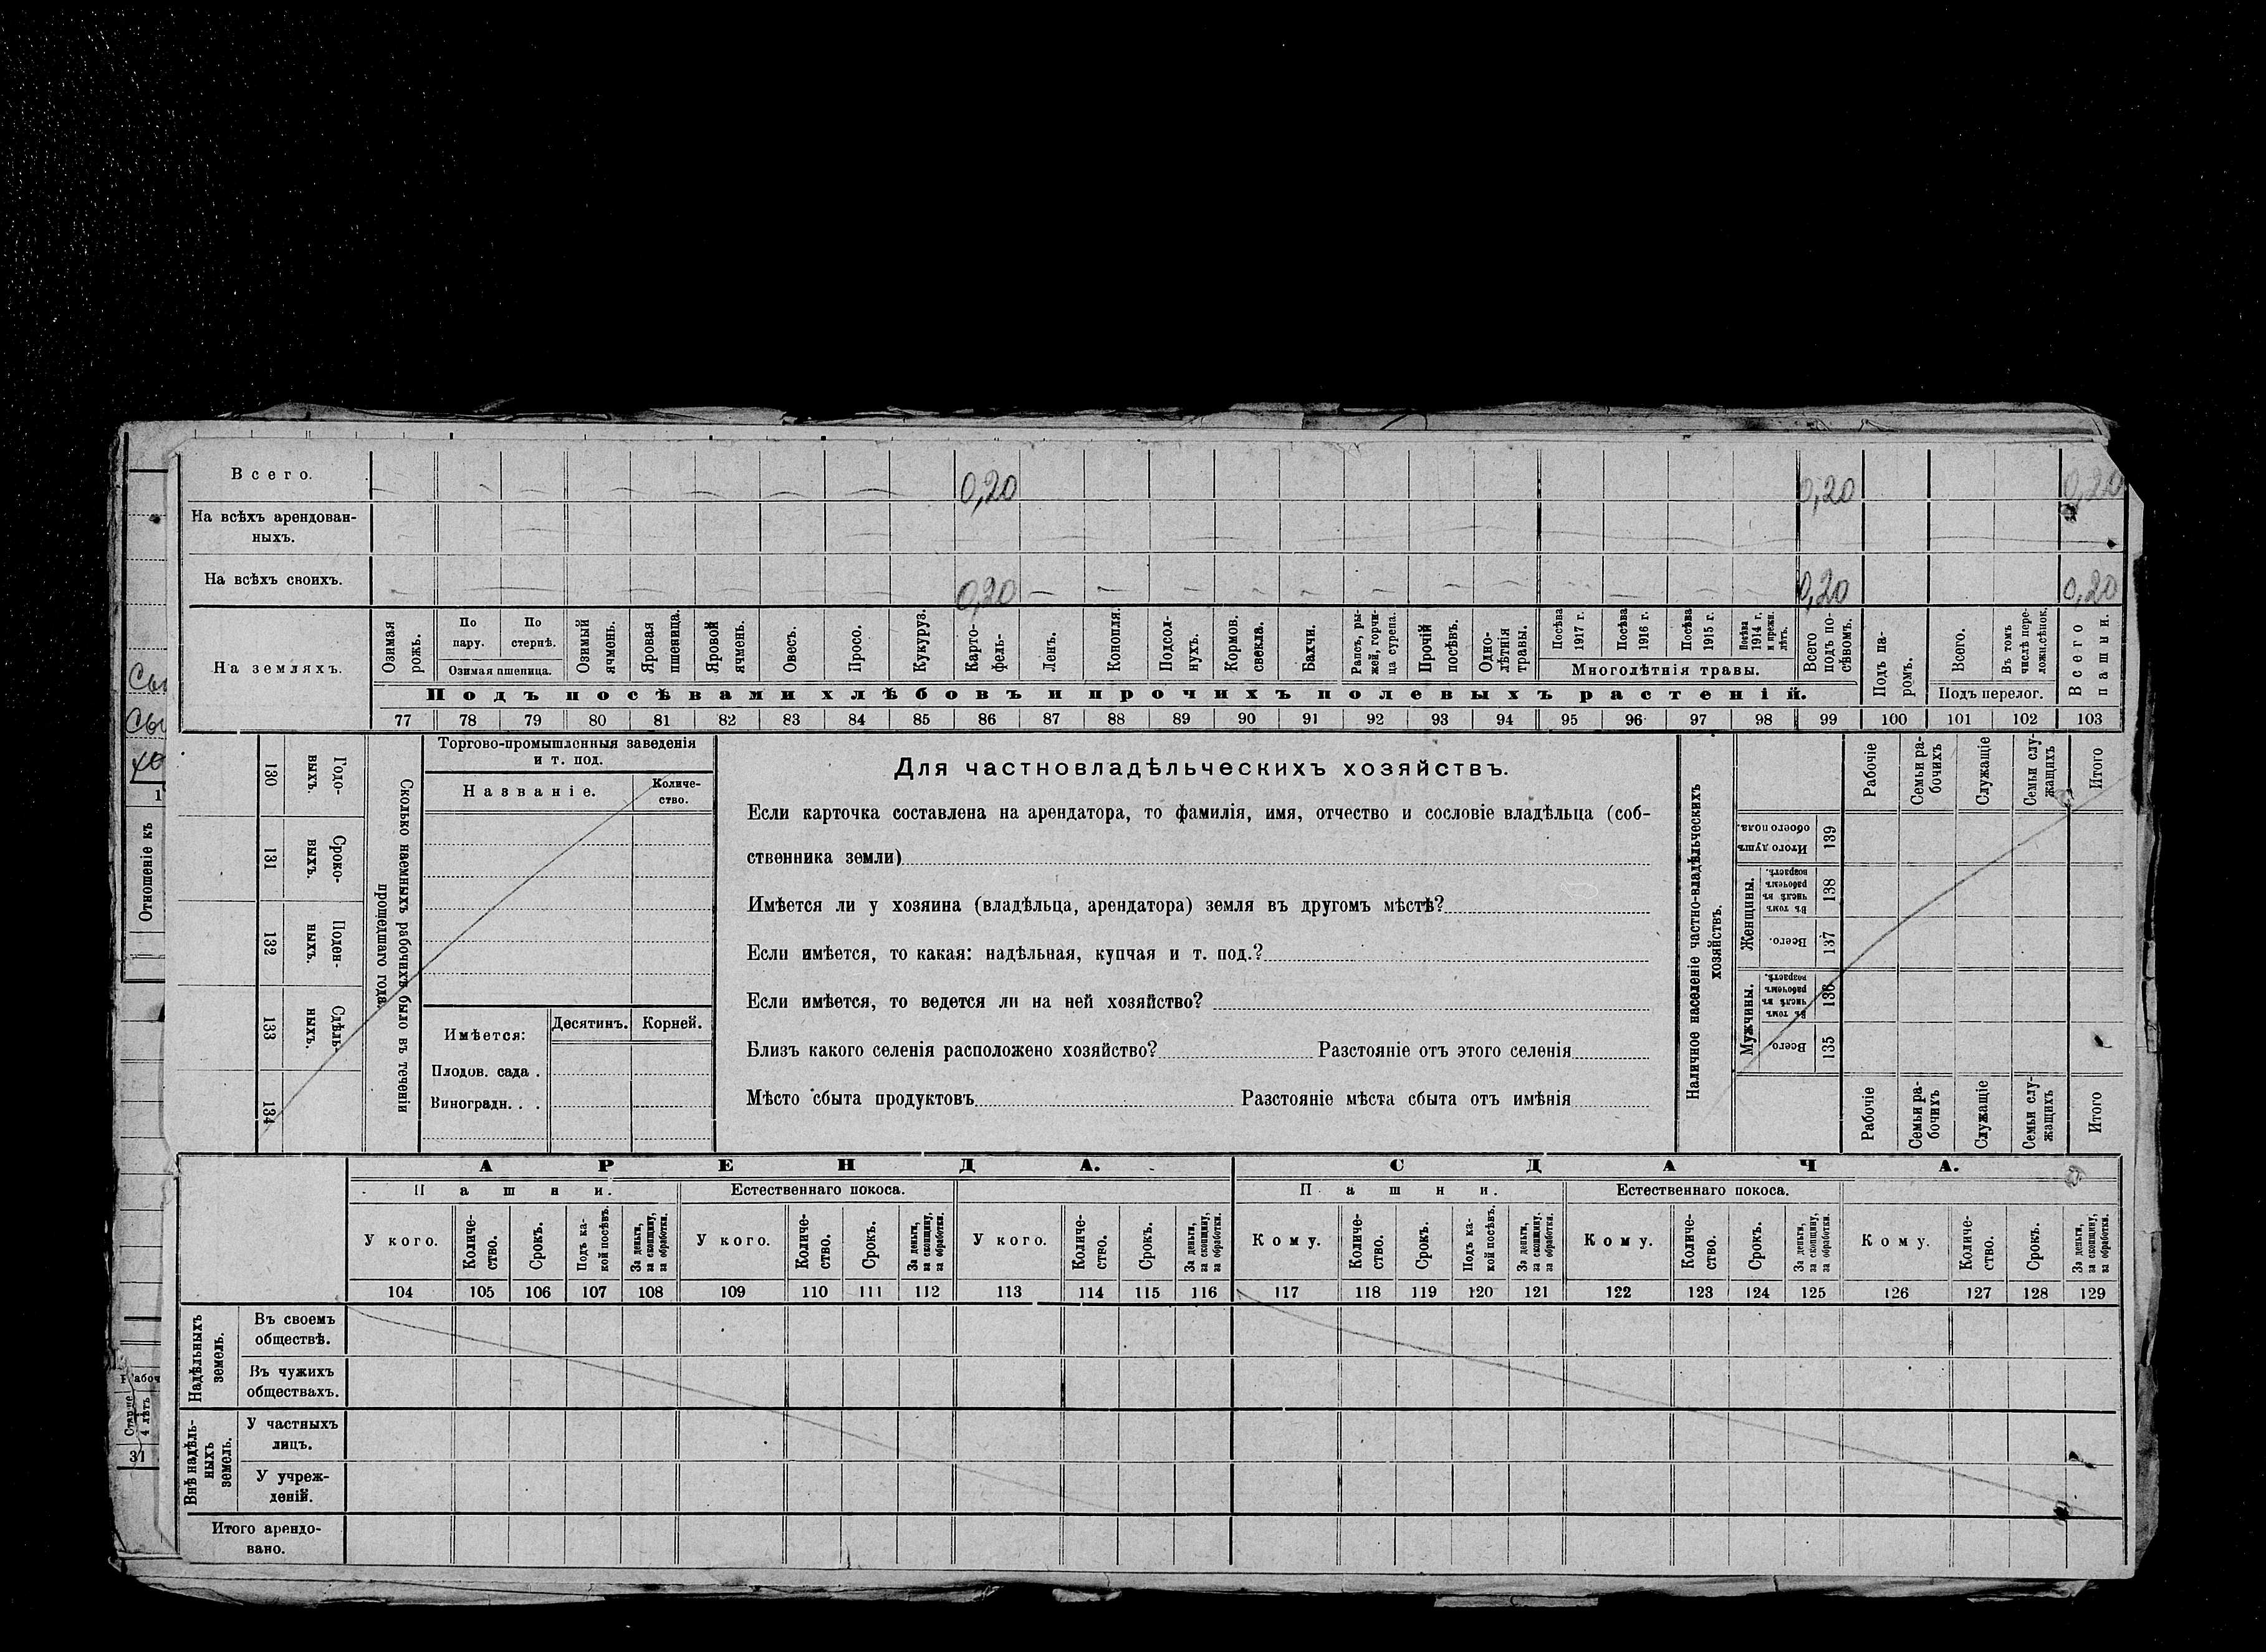 Всего. 0,20 0,20 0,20
На всѣхъ арендован-
ныхъ.
На всѣхъ своихъ. 0,20 0,20 0,20
На земляхъ.
Озимая рожь.
По пару.
По стернѣ.
Озимая пшеница.
Озимый ячмень.
Яровая пшеница.
Яровой ячмень.
Овесъ.
Просо.
Кукуруз.
Карто-
фель-
Ленъ.
Конопля.
Подсол-
нухъ.
Кормов. свекла.
Бахчи.
Рапсъ, ры-
жей, горчи-
ца сурепа.
Прочій посѣвъ.
Одно-
лѣтнія травы.
Посѣва 1917 г.
Посѣва 1916 г.
Посѣва 1915 г.
Посѣва 1914 г. и прежн. лѣтъ.
Многолѣтнія травы.
Всего подъ по-
сѣвомъ.
Подъ па-
ромъ.
Всего.
Въ томъ числѣ пере-
ложн.сѣнок.
Подъ перелог.
Всего пашни.
Подъ посѣвами хлѣбовъ и прочихъ полевыхъ растеній.
77 78 79 80 81 82 83 84 85 86 87 88 89 90 91 92 93 94 95 96 97 98 99 100 101 102 103
Отношеніе къ
Годо-
выхъ.
130
Сроко-
выхъ.
131
Поден-
ныхъ.
132
Сдѣль-
ныхъ.
133
134
Сколько наемныхъ рабочихъ было въ теченіи
прошедшаго года.
Торгово-промышленныя заведенія
и т. под.
Названіе.
Количе-
ство.
Имѣется:
Десятинъ.
Корней.
Плодов. сада .
Виноградн. . .
Для частновладѣльческихъ хозяйствъ.
Если карточка составлена на арендатора, то фамилія, имя, отчество и сословіе владѣльца (соб-
ственника земли)
Имѣется ли у хозяина (владѣльца, арендатора) земля въ другомъ мѣстѣ?
Если имѣется, то какая: надѣльная, купчая и т. под.?
Если имѣется, то ведется ли на ней хозяйство?
Близъ какого селенія расположено хозяйство? Разстояніе отъ этого селенія
Мѣсто сбыта продуктовъ Разстояніе мѣста сбыта отъ имѣнія
Наличное населеніе частно-владѣльческихъ
хозяйствъ.
Рабочіе
Семьи ра-
бочихъ
Служащіе
Семьи слу-
жащихъ
Итого
Итого душъ обоего пола.
139
Женщины.
Въ томъ числѣ въ рабочемъ возрастѣ.
138
Всего.
137
Мужчины.
Въ томъ числѣ въ рабочемъ возрастѣ.
136
Всего
135
Рабочіе
Семьи ра-
бочихъ
Служащіе
Семьи слу-
жащихъ
Итого
АРЕНДА. СДАЧА.
Пашни. Естественнаго покоса. Пашни. Естественнаго покоса.
У кого.
Количе-
ство.
Срокъ.
Подъ ка-
кой посѣвъ.
За деньги,
за скопщину,
за обработки.
У кого.
Количе-
ство.
Срокъ.
За деньги,
за скопщину,
за обработки.
У кого.
Количе-
ство.
Срокъ.
За деньги,
за скопщину,
за обработки.
Кому.
Количе-
ство.
Срокъ.
Подъ ка-
кой посѣвъ.
За деньги,
за скопщину,
за обработки.
Кому.
Количе-
ство.
Срокъ.
За деньги,
за скопщину,
за обработки.
Кому.
Количе-
ство.
Срокъ.
За деньги,
за скопщину,
за обработки.
104 105 106 107 108 109 110 111 112 113 114 115 116 117 118 119 120 121 122 123 124 125 126 127 128 129
Надѣльныхъ
земель.
Въ своемъ
обществѣ.
Въ чужихъ
обществахъ.
Внѣ надѣль-
ныхъ
земель.
У частныхъ
лицъ.
У учреж-
деній.
Итого арендо-
вано.
31